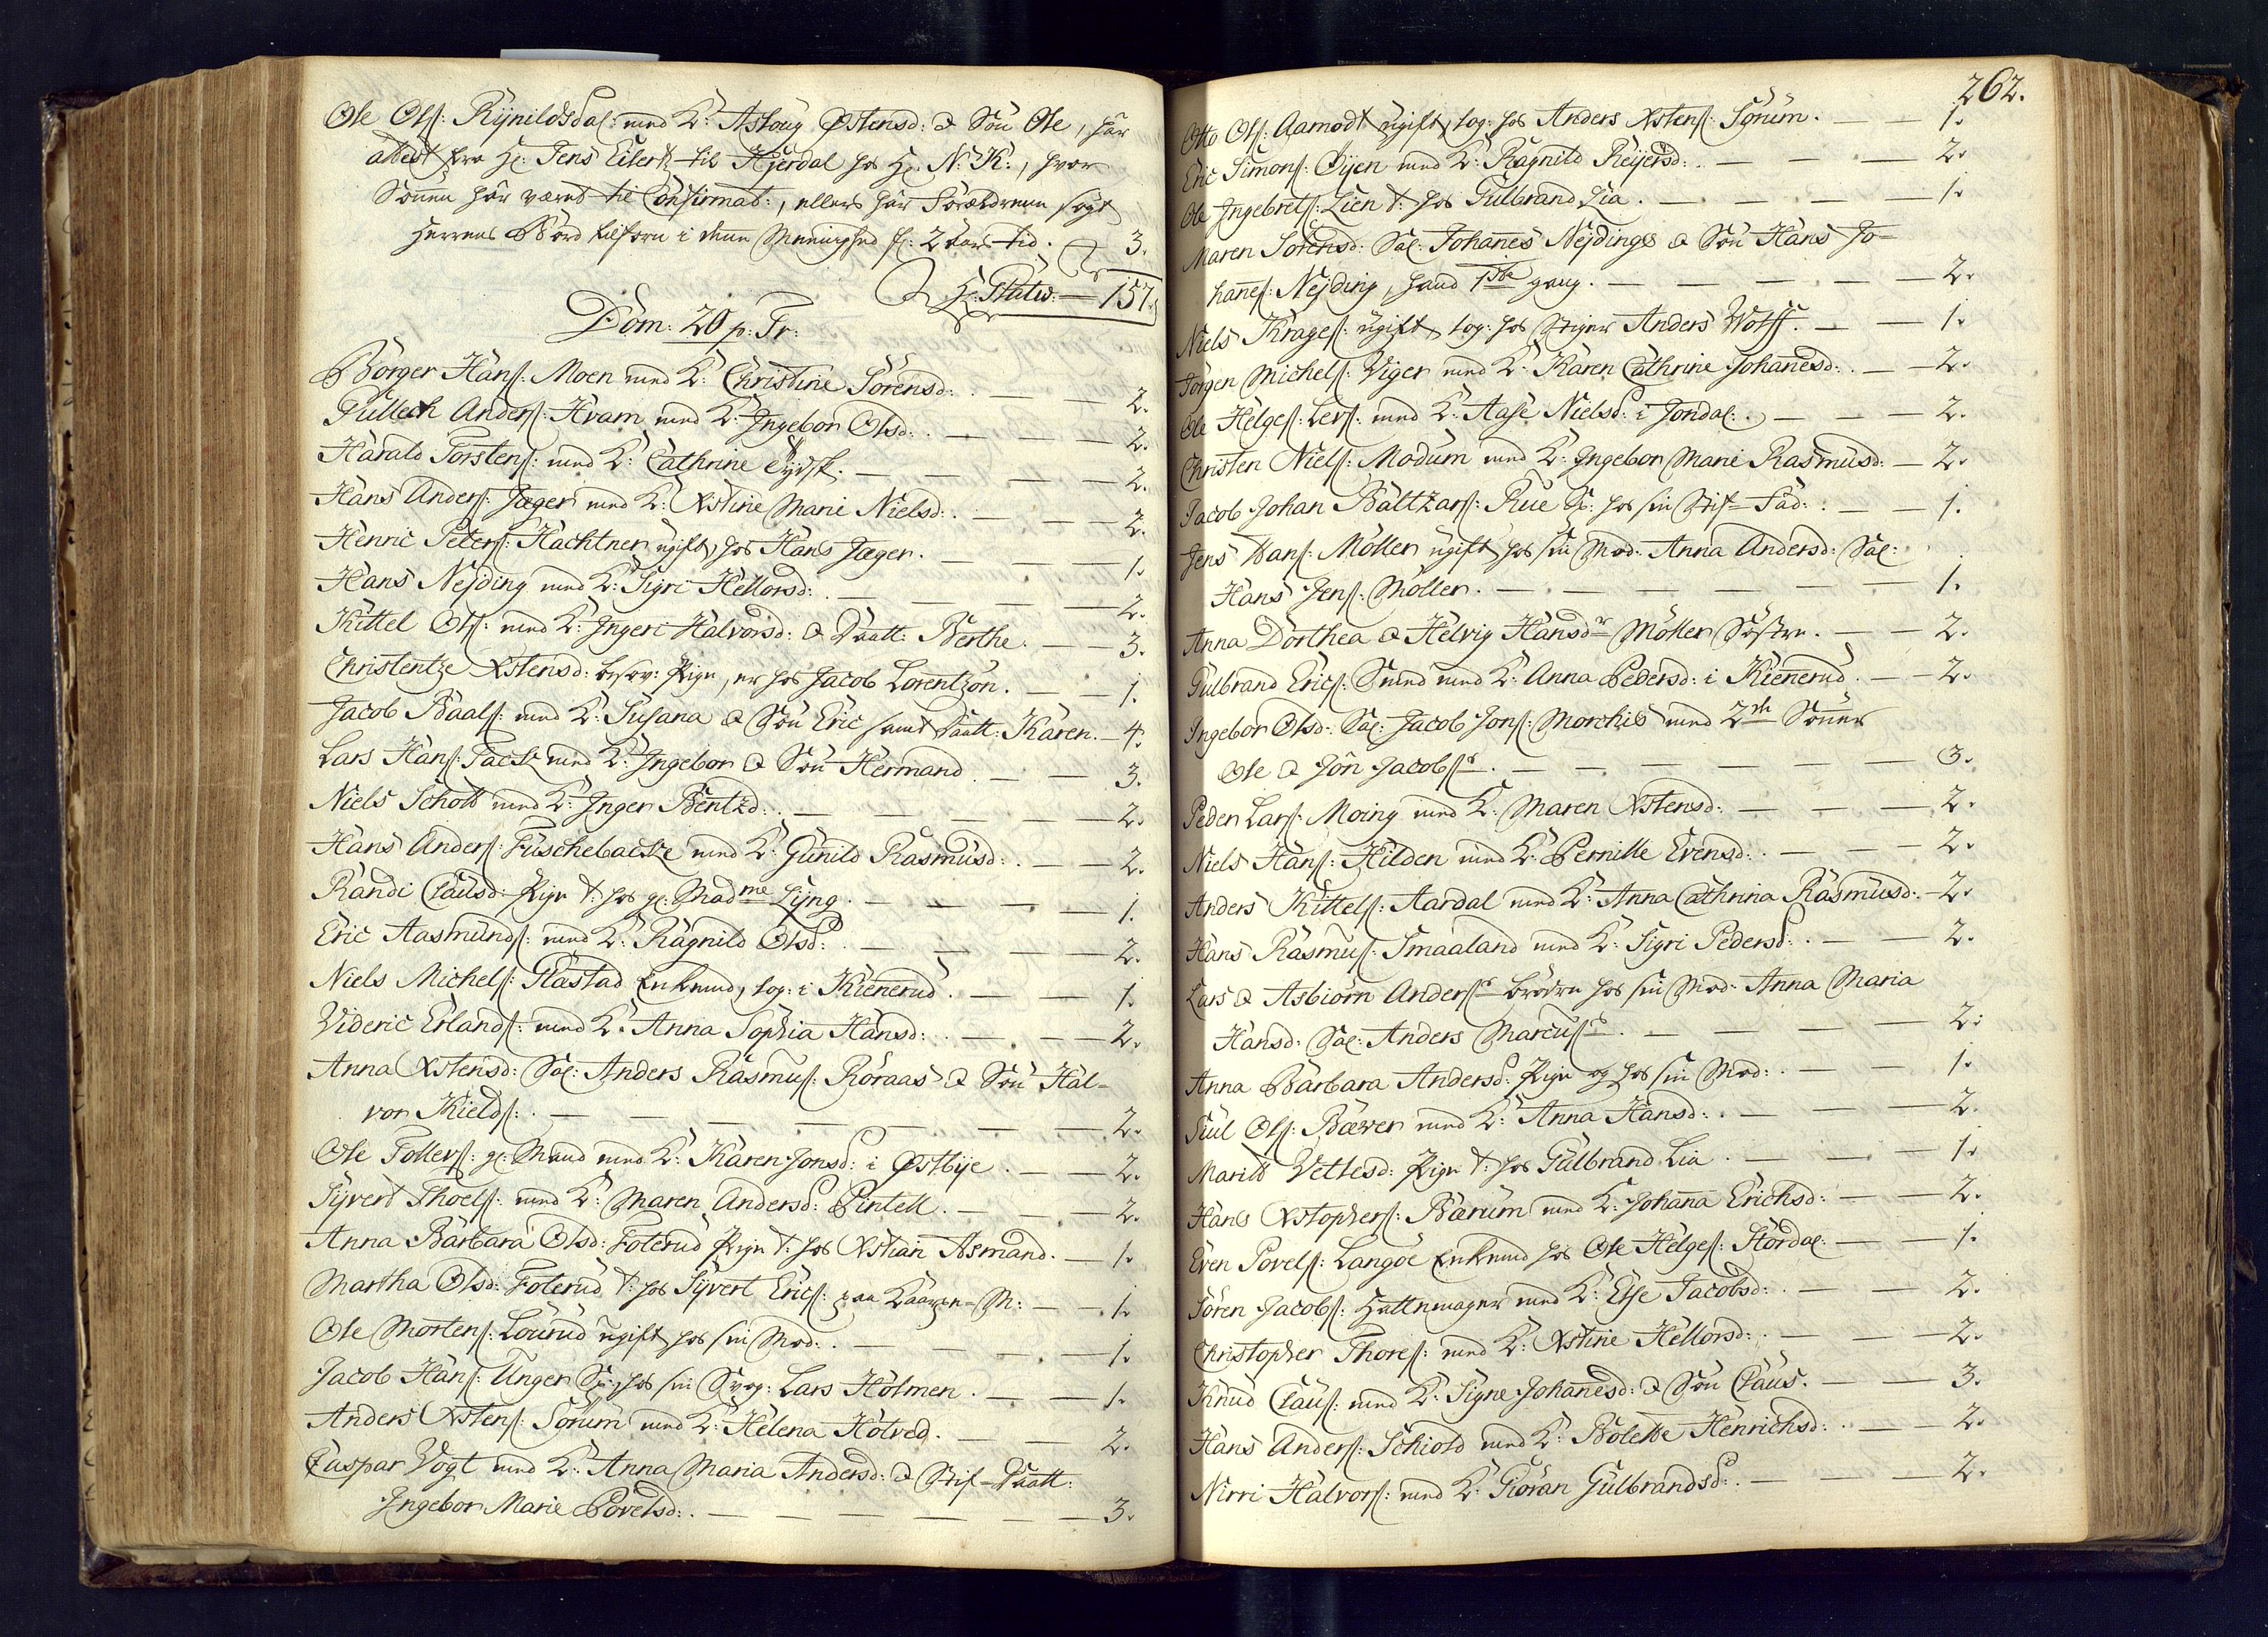 Ole Ols: Rynildsdal: med K: Asloug Østensd: & Søn Ole, har
attest fra Hr: Jens Eilert til Hjerdal hos Hr: N: K:, hvor
Sønnen har været til Confirmat:, ellers har Forældrene søgt
Herrens Bord tilforn i denne Meenighed 2 Aars tid. 3.
Hr: 157.
Dom: 20 p: Tr:
Börger Hans: Moen med K: Christine Sörensd: 2.
Gullech Anders: Hvam med K: Ingebor Olsd: 2.
Harald Torstens: med K: Cathrine Tydsk: 2.
Hans Anders: Jæger med K: Xstine Marie Nielsd: 2.
Henric Peters: Hachtner ugift, hos Hans Jæger. 1.
Hans Nejding med K: Sigri Hellorsd: 2.
Kittel Ols: med K: Ingeri Halvorsd: & Daatt: Berthe. 3.
Christentze Xstensd: Pige, er hos Jacob Lorentzon. 1.
Jacob Baals: med K: Susana & Søn Eric samt Daatt: Karen. 4.
Lars Hans: Tack med K: Ingebor & Søn Hermand 3.
Niels Schott med K: Inger Bentzd: 2.
Hans Anders: Fuschebacke med K: Gunild Rasmusd: 2.
Randi Clausd: Pige t: hos gl: Madme Lyng. 1.
Eric Aasmunds: med K: Ragnild Olsd: 2.
Niels Michels: Flæstad Enkemd, log: i Kiennerud. 1.
Videric Erlands: med K: Anna Sophia Hansd: 2.
Anna Xstensd: Sal: Anders Rasmus: Röraas & Søn Hal-
vor Kields: 2.
Ole Tollers: gl: Mand med K: Karen Jonsd: i Østbye. 2.
Syvert Thoels: med K: Maren Andersd: Pintell. 2.
Anna Barbara Olsd: Foterud Pige t: hos Xstian Asmand. 1.
Martha Olsd: Foterud t: hos Syvert Erics: paa M: 1.
Ole Mortens: Lourud ugift hos sin Mod: 1.
Jacob Hans: Unger hos sin Svog: Lars Holmen. 1.
Anders Xstens: Sörum med K: Helena Holved. 2.
Caspar Vogt med K: Anna Maria Andersd: & Stif-Daatt:
Ingebor Marie Povelsd: 3.
262.
Otto Ols: Aamodt ugift, log: hos Anders Xstens: Sörum. 1.
Eric Simons: Øyen med K: Ragnild Reyersd: 2.
Ole Ingebrets: Lien t: hos Gulbrand Lia. 1.
Maren Sörensd: Sal: Johannes Nejdings & Søn Hans Jo-
hannes: Nejding, hand 1ste gang. 2.
Niels Krages: ugift, log: hos Stiger Anders Wolff. 1.
Jörgen Michels: Viger med K: Karen Cathrine Johannesd: 2.
Ole Helges: Lers: med K: Aase Nielsd: i Jondal: 2.
Christen Niels: Modum med K: Ingebor Marie Rasmusd: 2.
Jacob Johan Baltzars: Rue hos sin Stif-Fad: 1.
Jens Hans: Möller ugift, hos sin Mod: Anna Andersd: Sal:
Hans Jens: Möller. 1.
Anna Dorthea & Helvig Hansdr Möller Søstre. 2.
Gulbrand Erics: Smed med K: Anna Pedersd: i Kiennerud. 2.
Ingebor Olsd: Sal: Jacob Jons: Morchis med 2de Sønner
Ole & Jon Jacobss. 3.
Peder Lars: Moing med K: Maren Xstensd: 2.
Niels Hans: Hilden med K: Pernille Evensd: 2.
Anders Kittels: Aardal med K: Anna Cathrina Rasmusd: 2.
Hans Rasmus: Smaaland med K: Sigri Pedersd: 2.
Lars & Asbiörn Anderss Brødre hos sin Mod: Anna Maria
Hansd: Sal: Anders Marcuss. 2.
Anna Barbara Andersd: Pige og hos sin Mod: 1.
Juul Ols: Bæver med K: Anna Hansd: 2.
Maritt Vetlesd: Pige t: hos Gulbrand Lia. 1.
Hans Xstophers: Bærum med K: Johanna Erichsd: 2.
Even Povels: Langöe Enkemd hos Ole Helges: Hördal: 1.
Sören Jacobs: Hattemager med K: Else Jacobsd: 2.
Christopher Thores: med K: Xstine Hellorsd: 2.
Knud Claus: med K: Signe Johannesd: & Søn Claus. 3.
Hans Anders: Schiold med K: Bolette Henrichsd: 2.
Nirri Halvors: med K: Giöran Gulbrandsd: 2.